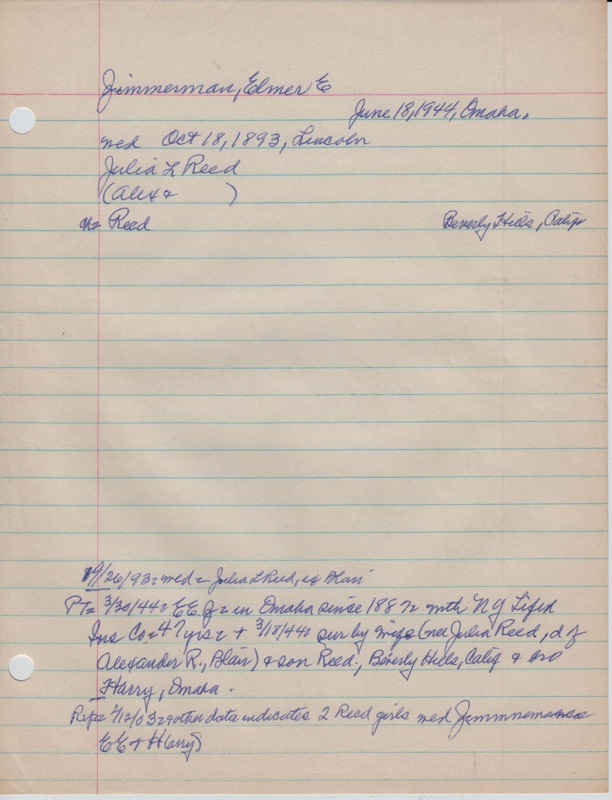 Zimmerman, Elmer E
June 18, 1944, Omaha.
med Oct 18, 1893, Lincoln
Julia L Reed
(Alex & )
Reed Beverly Hills, Calif
9/26/93 = med = Julia L Reed, of Blair
PT= 3/30/44 = EE Z = in Omaha since 1887 = with NY Life
Ins Co = 47 yrs = + 3/18/44 sur by wife (nee Julia Reed, d of
Alexander R., Blair) & son Reed., Beverly Hills, Calif & bro
Harry, Omaha.
Rep= /03 = other data indicates 2 Reed girls med Zimmermans
EE & Harry)